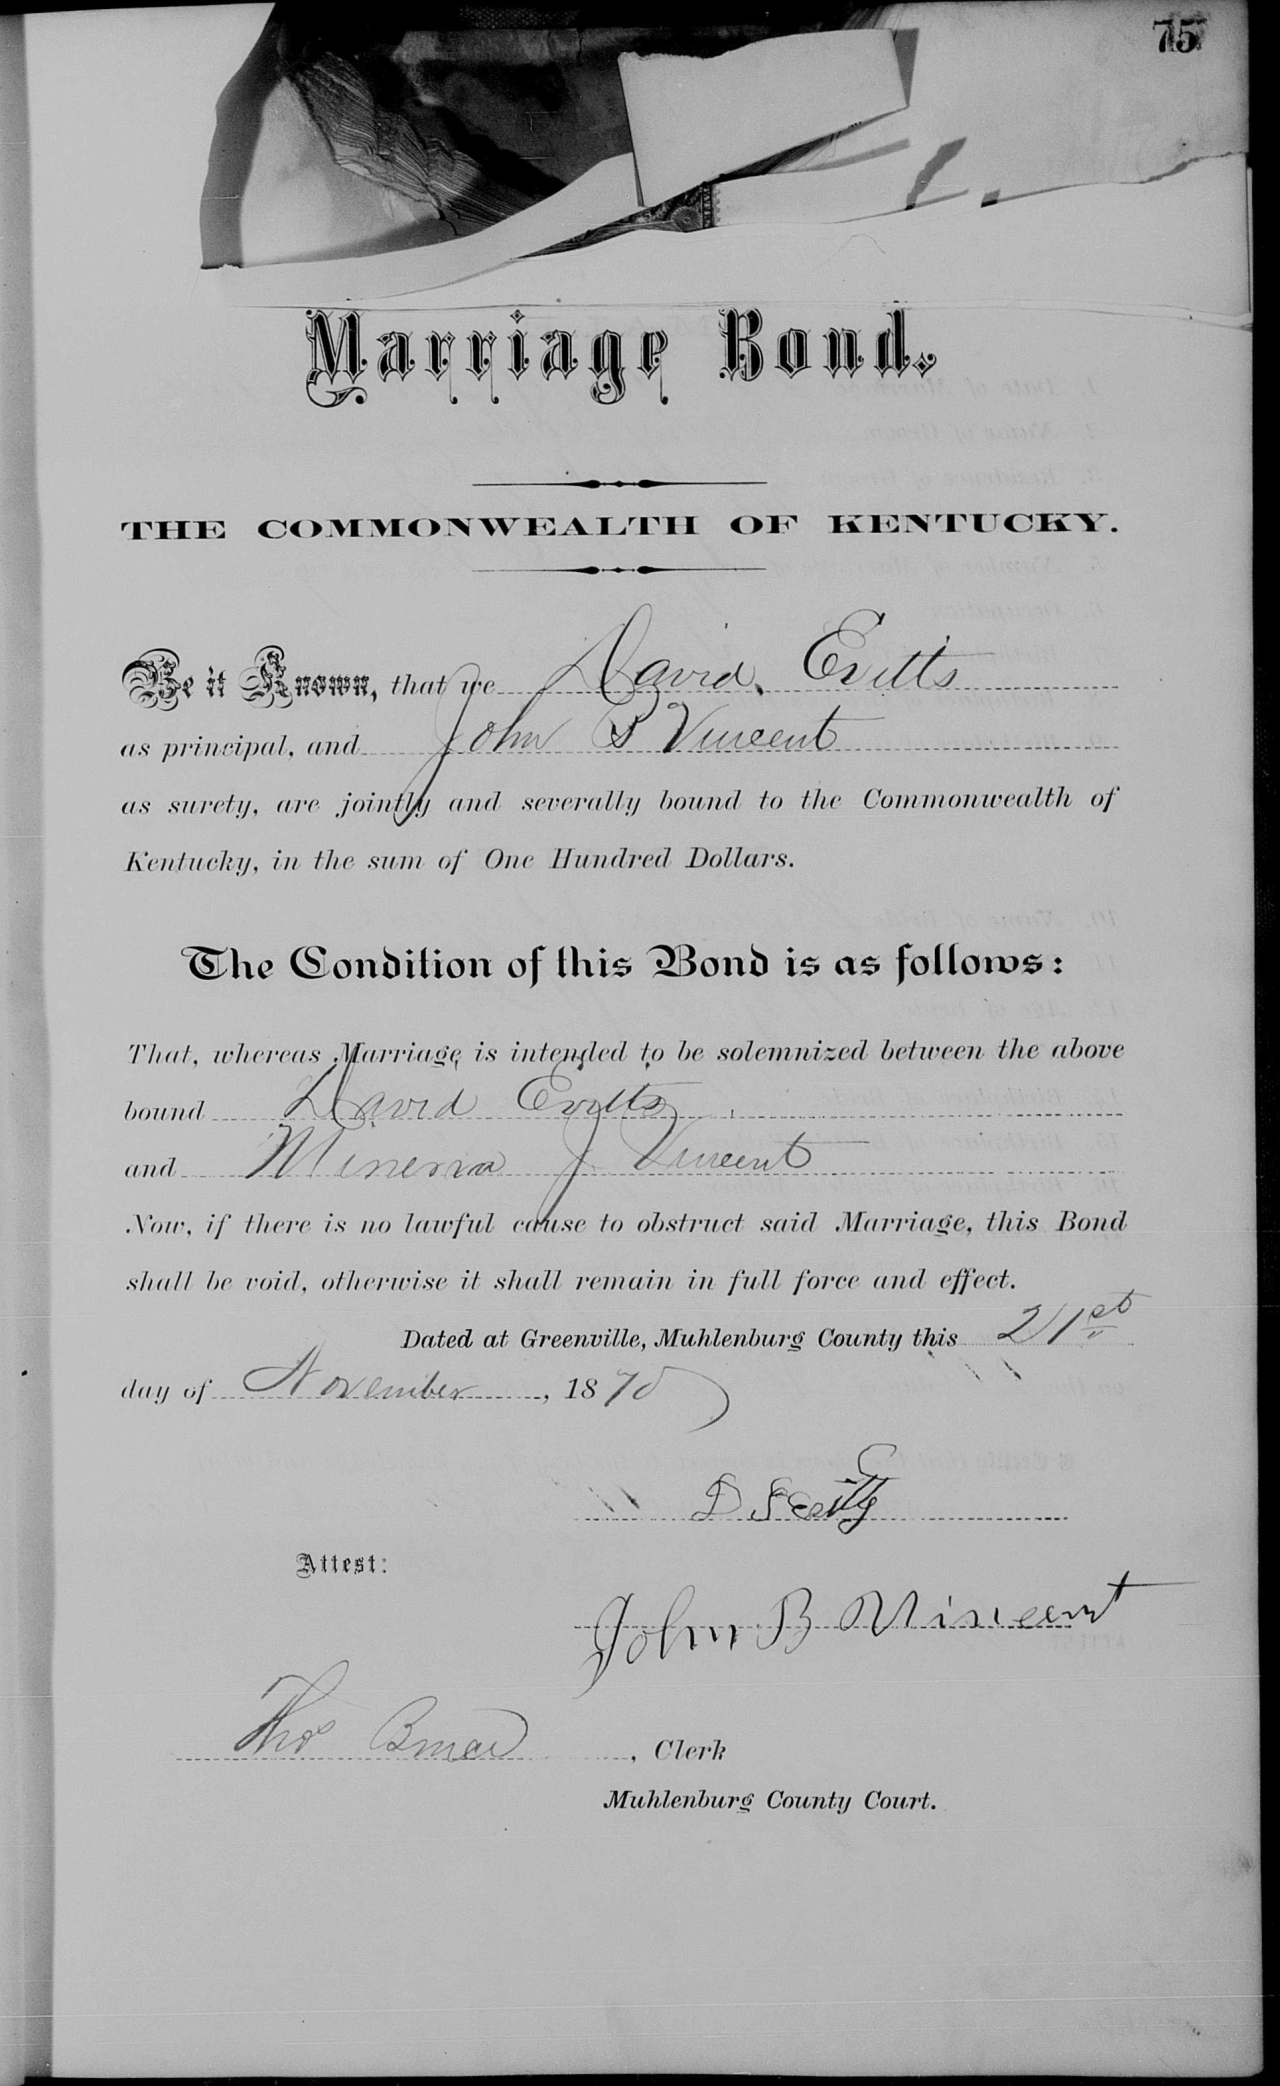 75
Marriage Bond.
THE COMMONWEALTH OF KENTUCKY.
Be it Known, that we David Evitts
as principal, and John B Vincent
as surety, are jointly and severally bound to the Commonwealth of
Kentucky, in the sum of One Hundred Dollars.
The Condition of this Bond is as follows:
That, whereas Marriage is intended to be solemnized between the above
bound David Evitts
and Minerva J Vincent
Now, if there is no lawful cause to obstruct said Marriage, this Bond
shall be void, otherwise it shall remain in full force and effect.
Dated at Greenville, Muhlenburg County this 21st
day of November, 1870
D
Attest:
John B Vincent
Thos, Clerk
Muhlenburg County Court.